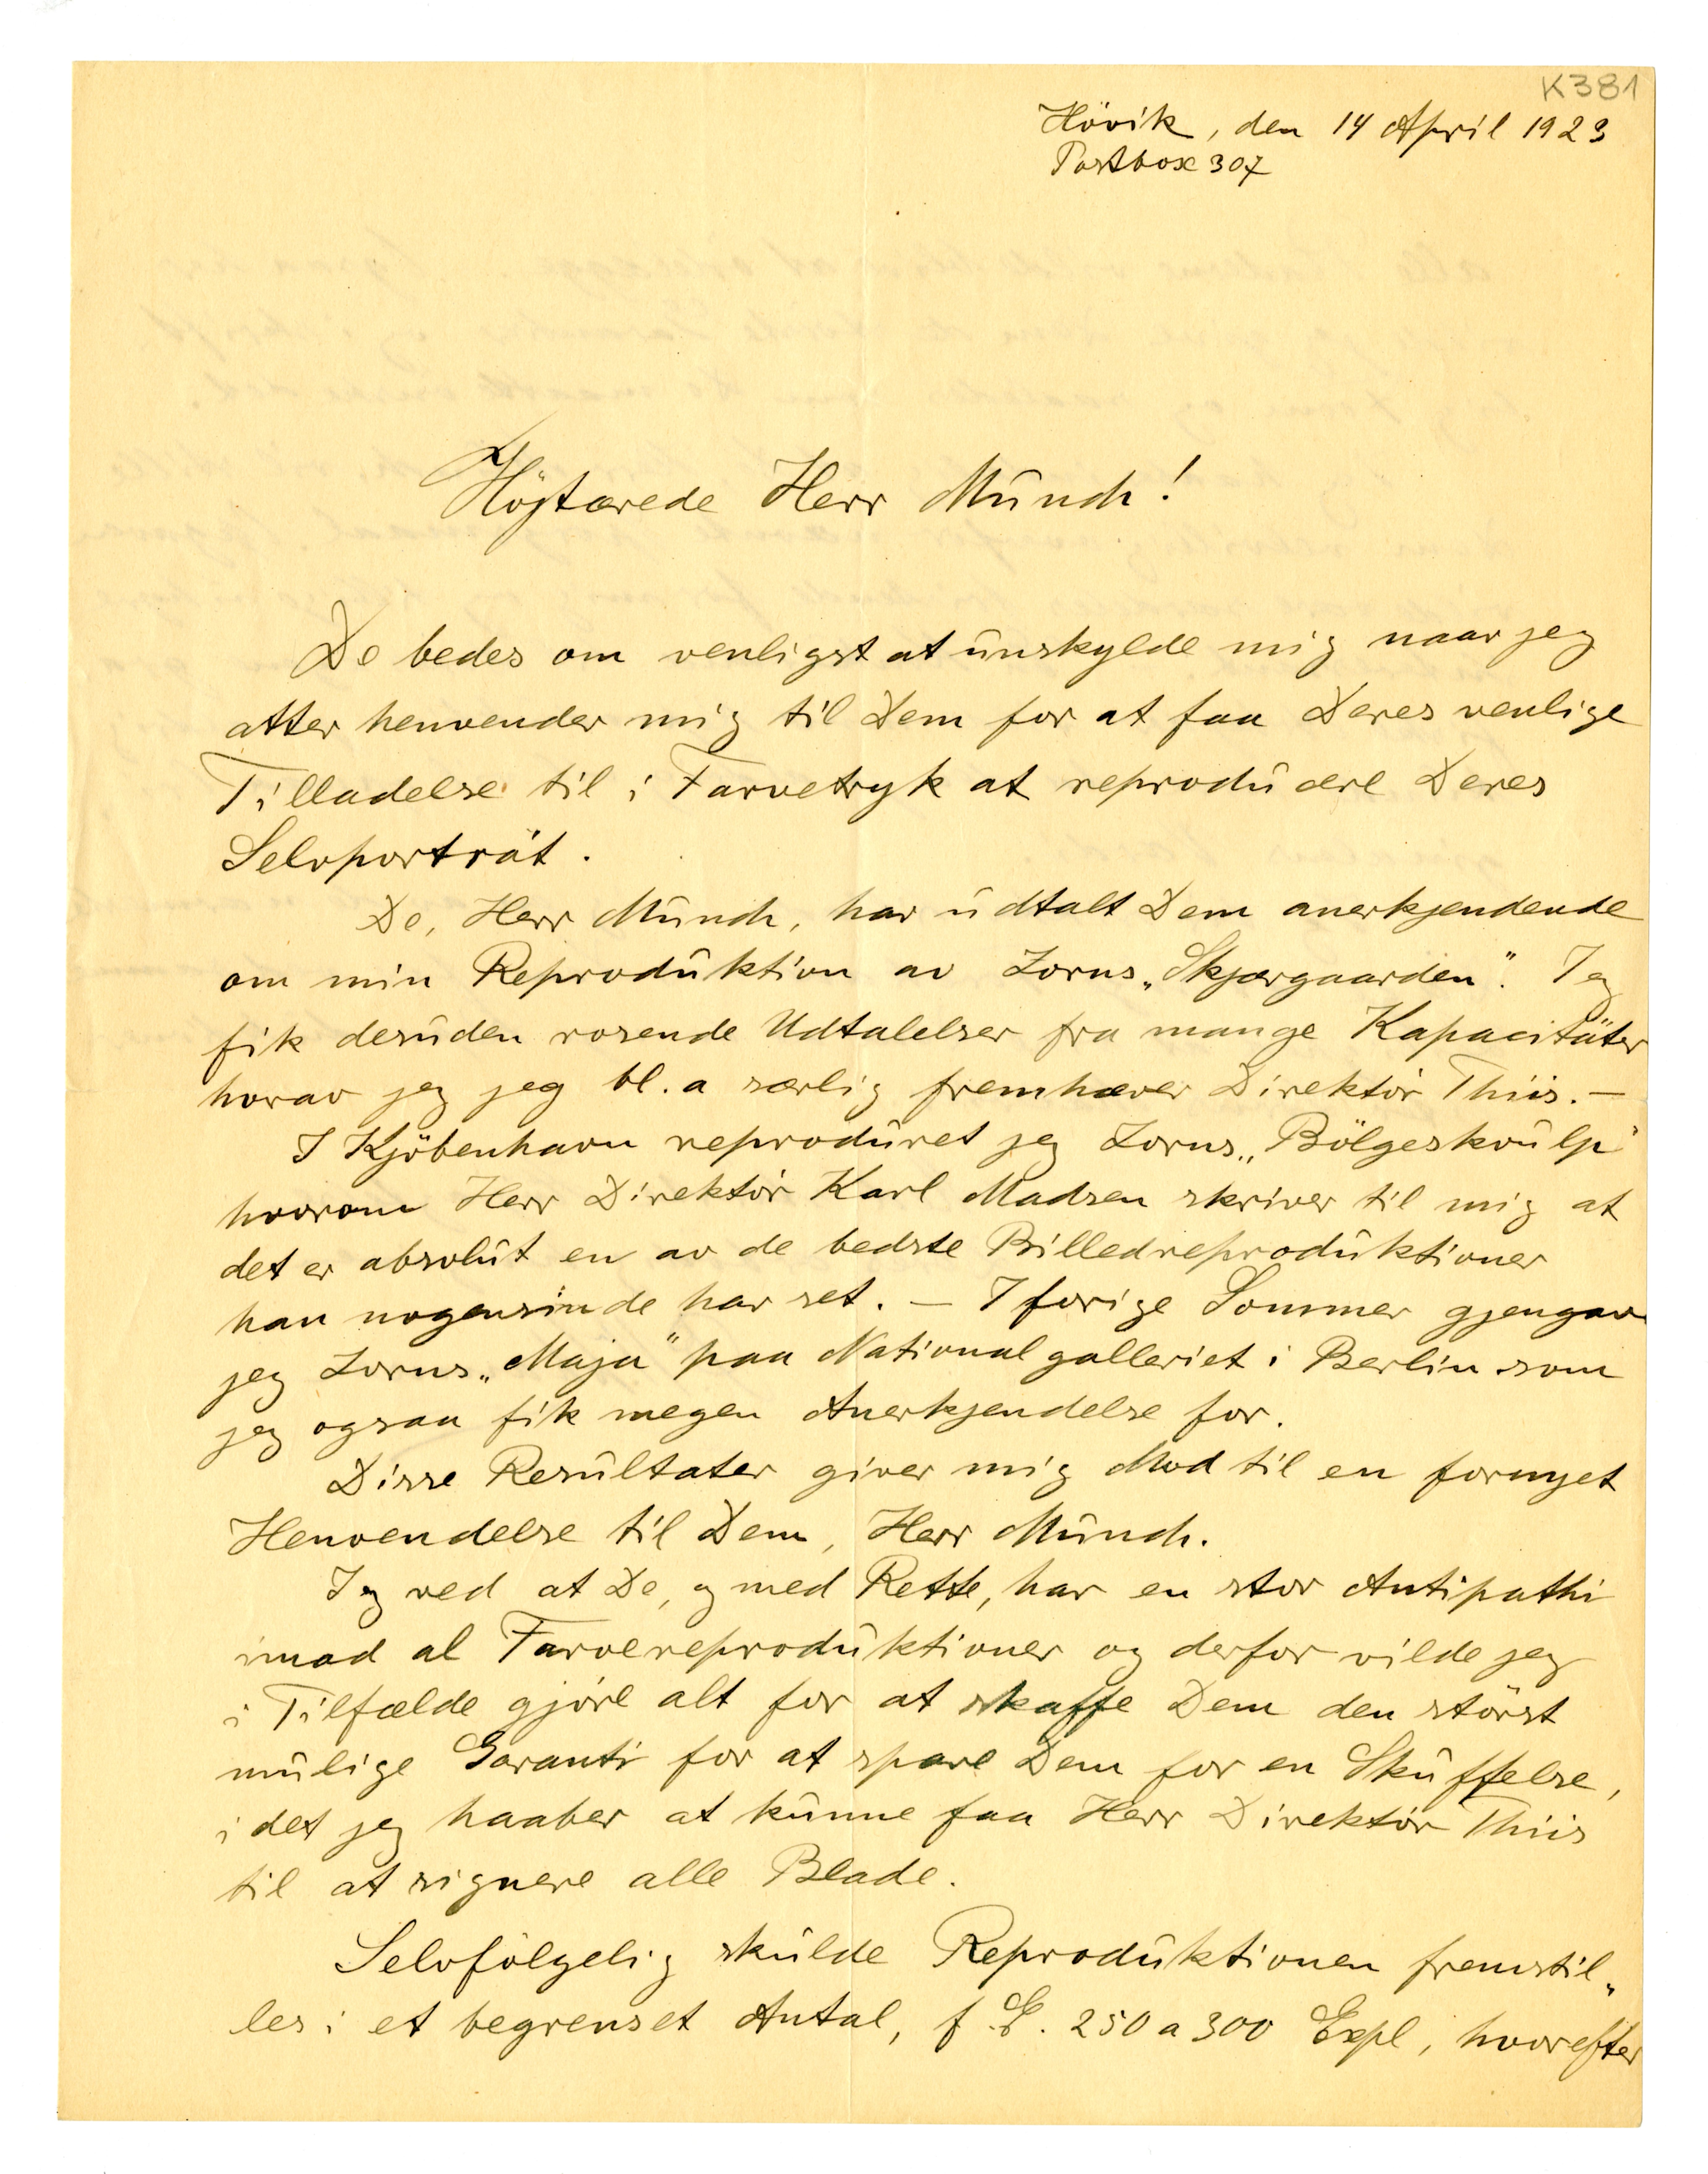 K381
Hövik, den 14 April 1923
Postbox 307
Högtærede Herr Munch!
De bedes om venligst at unskylde mig naar jeg
atter henvender mig til Dem for at faa Deres venlige
Tilladelse til i Farvetryk at reproducere Deres
Selvporträt.
De, Herr Munch, har udtalt Dem anerkjendende
om min Reproduktion av Zorns „Skjærgaarden". Jeg
fik desuden rosende Udtalelser fra mange Kapacitäter
hvorav jeg jeg bl. a særlig fremhæver Direktör Thiis. —
I Kjöbenhavn reproduret jeg Zorns „Bölgeskvulp"
hvorom Herr Direktör Karl Madsen skriver til mig at
det er absolut en av de bedste Billedreproduktioner
han nogensinde har set. — I forige Sommer gjengav
jeg Zorns „Maja" paa Nationalgalleriet i Berlin som
jeg ogsaa fik megen Anerkjendelse for.
Disse Resultater giver mig Mod til en fornyet
Henvendelse til Dem, Herr Munch.
Jeg ved at De, og med Rette, har en stor Antipathi
imod al Farvereproduktioner og derfor vilde jeg
i Tilfælde gjöre alt for at skaffe Dem den störst
mulige Garanti for at spare Dem for en Skuffelse,
i det jeg haaber at kunne faa Herr Direktör Thiis
til at signere alle Blade.
Selvfölgelig skulde Reproduktionen fremstil„
les i et begrenset Antal, f. E. 250 a 300 Expl, hvorefter